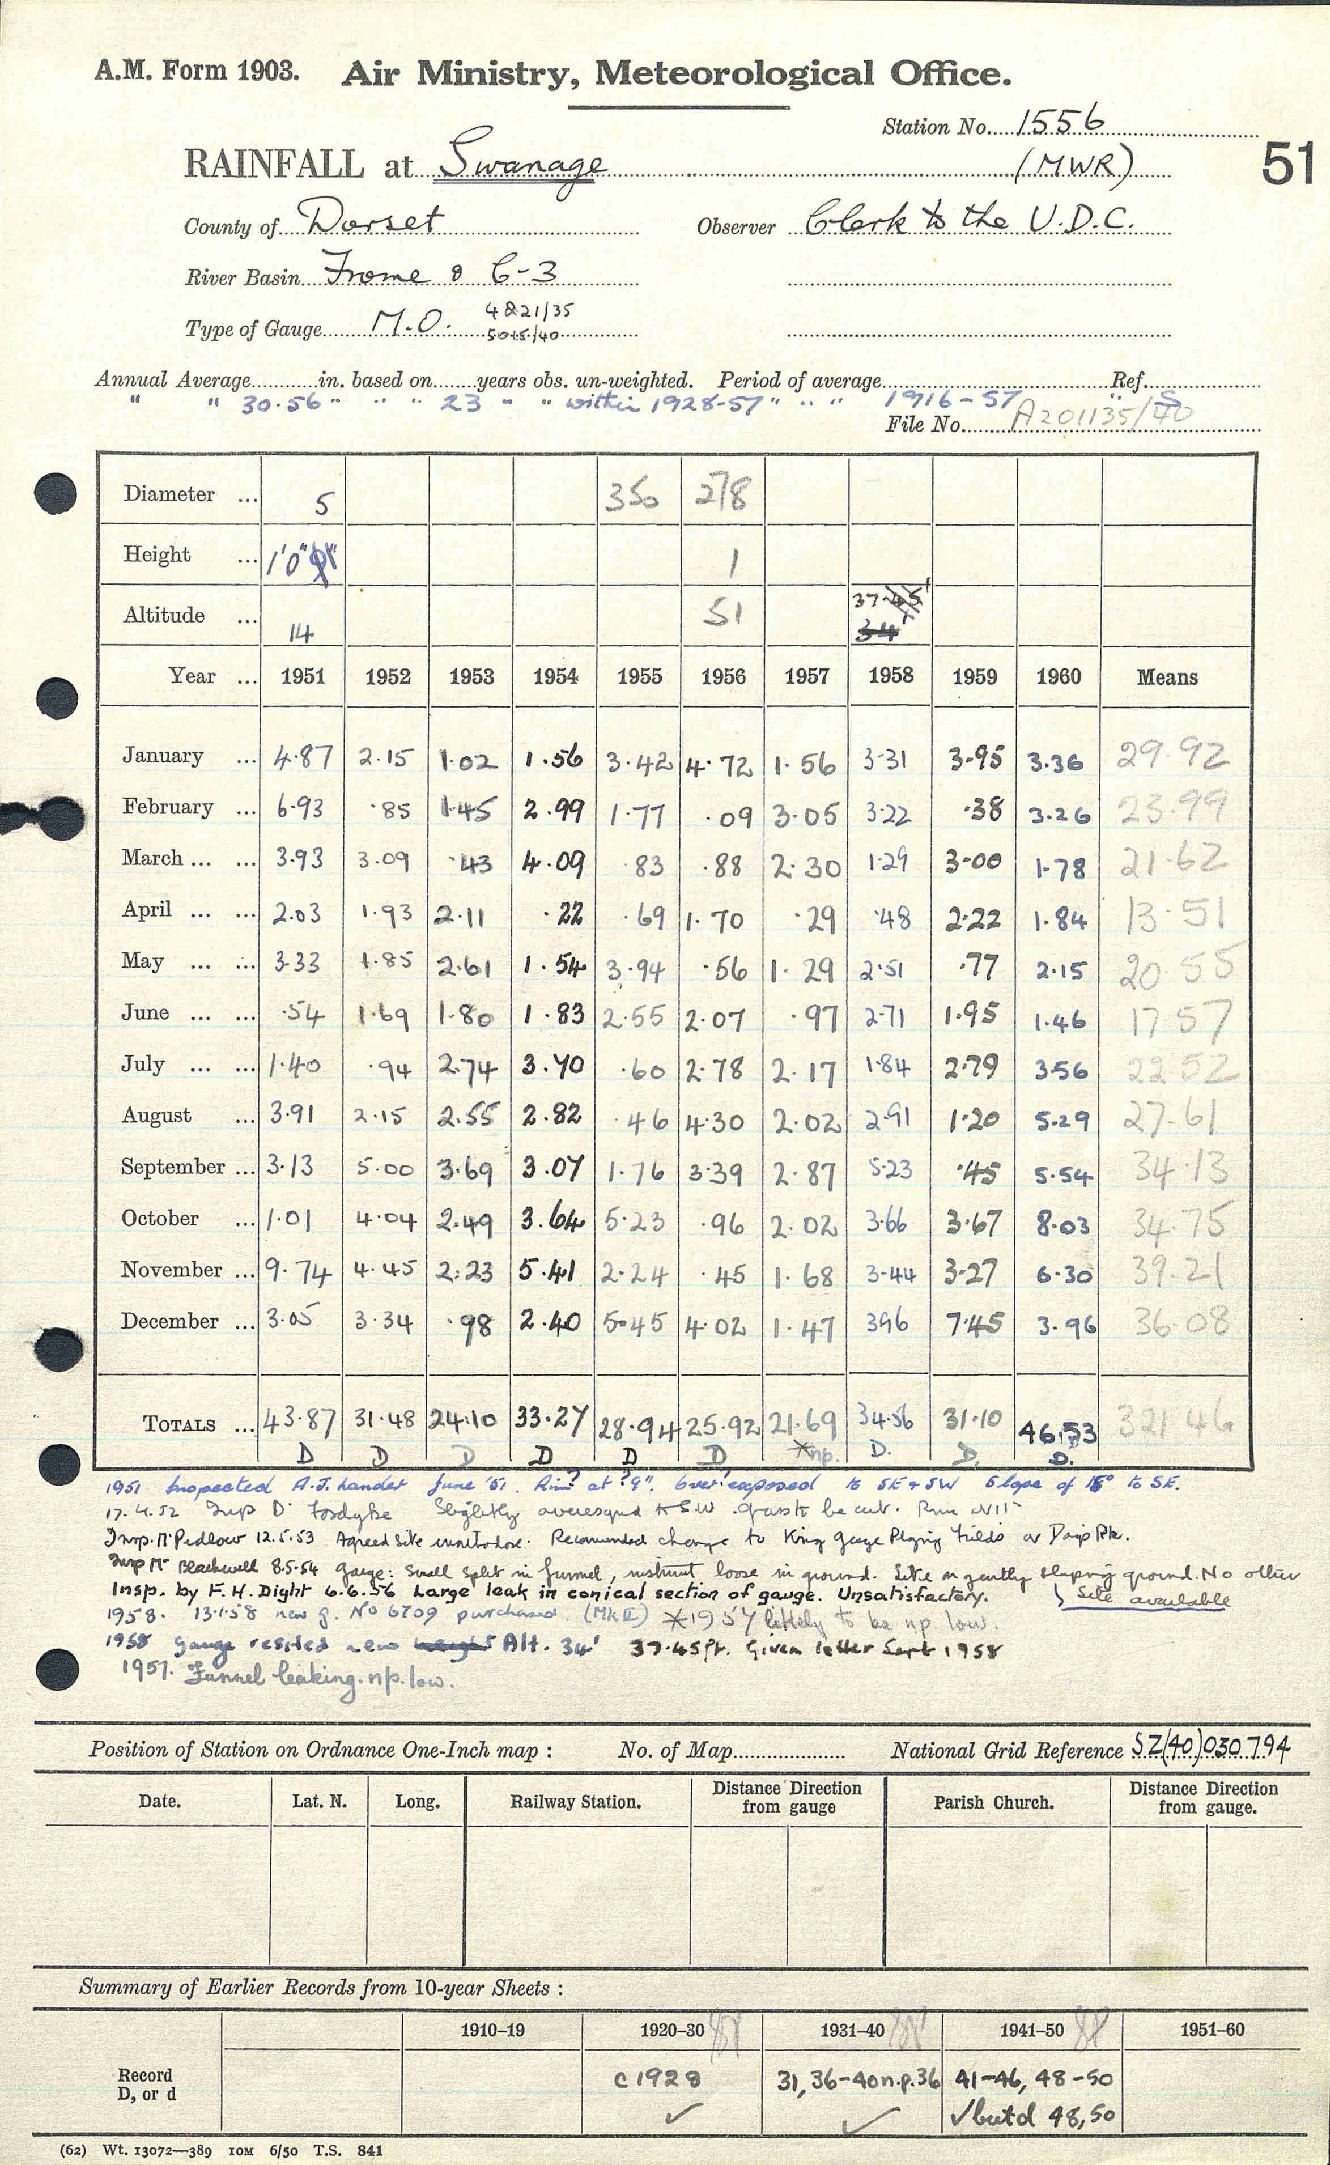 A.M. Form 1903. Air Ministry, Meteorological Office.
Station No. 1556
RAINFALL at Swanage (MWR) 51
County of Dorset Observer Clerk to the U.D.C.
River Basin Frome & C-3
Type of Gauge M.O. 4821/35
/40
Annual Average in. based on years obs. un-weighted. Period of average Ref.
" " 30.56 " " " 23 " " within 1928-57 " " " 1916-57 " S
File No. A201135/40
Diameter ... 5 350 278
Height ... 1'0" 1
Altitude ... 14 51 37.45 34
Year ... 1951 1952 1953 1954 1955 1956 1957 1958 1959 1960 Means
January ... 4.87 2.15 1.02 1.56 3.42 4.72 1.56 3.31 3.95 3.36 29.92
February ... 6.93 .85 1.45 2.99 1.77 .09 3.05 3.22 .38 3.26 23.99
March ... ... 3.93 3.09 .43 4.09 .83 .88 2.30 1.29 3.00 1.78 21.62
April ... ... 2.03 1.93 2.11 .22 .69 1.70 .29 .48 2.22 1.84 13.51
May ... ... 3.33 1.85 2.61 1.54 3.94 .56 1.29 2.51 .77 2.15 20.55
June ... ... .54 1.69 1.80 1.83 2.55 2.07 .97 2.71 1.95 1.46 17.57
July ... ... 1.40 .94 2.74 3.70 .60 2.78 2.17 1.84 2.79 3.56 22.52
August ... 3.91 2.15 2.55 2.82 .46 4.30 2.02 2.91 1.20 5.29 27.61
September ... 3.13 5.00 3.69 3.07 1.76 3.39 2.87 5.23 .45 5.54 34.13
October ... 1.01 4.04 2.49 3.64 5.23 .96 2.02 3.66 3.67 8.03 34.75
November ... 9.74 4.45 2.23 5.41 2.24 .45 1.68 3.44 3.27 6.30 39.21
December ... 3.05 3.34 .98 2.40 5.45 4.02 1.47 3.96 7.45 3.96 36.08
TOTALS ... 43.87 31.48 24.10 33.27 28.94 25.92 21.69 34.56 31.10 46.53 321.46
D D D D D D *np. D. D. D.
1951 Inspected A.J. Lander June '51. Rim? at ?9". Over exposed to SE + SW Slope of 15° to SE.
17.4.52 Insp D Fosdyke Slightly to SW. grass to be cut. Rim
Insp. Mr Pedlow 12.5.53 Agreed site unsuitable. Recommended change to King George Playing Fields or
Insp Mr Blackwell 8.5.54 gauge: Small split in funnel, instrument loose in ground. Site on gently sloping ground. No other
Site available
Insp. by F.H. Dight 6.6.56 Large leak in conical section of gauge. Unsatisfactory.
1958. 13.1.58 new g. No 6709 purchased. (Mk II) *1957 likely to be np low.
1958 Gauge resited new height Alt. 34' 37.45ft. Given letter Sept 1958
1957. Funnel leaking. np. low.
Position of Station on Ordnance One-Inch map : No. of Map National Grid Reference SZ(40)030794
Date. Lat. N. Long. Railway Station. Distance Direction from gauge Parish Church. Distance Direction from gauge.
Summary of Earlier Records from 10-year Sheets :
1910–19 1920–30 1931–40 1941–50 1951–60
Record D, or d c1928 31, 36-40 n.p. 36 41-46, 48-50
✓ ✓ ✓ but d 48, 50
(62) Wt. 13072—389 10M 6/50 T.S. 841